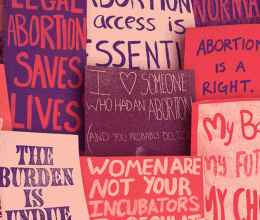 LEGAL
ABORTION
SAVES
LIVES
ABORTION
access is
ESSENTI
NORMA
ABORTION
IS A
RIGHT.
I ♥ SOMEONE
WHO HAD AN ABORTION
(AND YOU PROBABLY DO, T
THE
BURDEN
IS
UNDUE
WOMEN ARE
NOT YOUR
INCUBATORS
My Bo
My FUT
My CHO